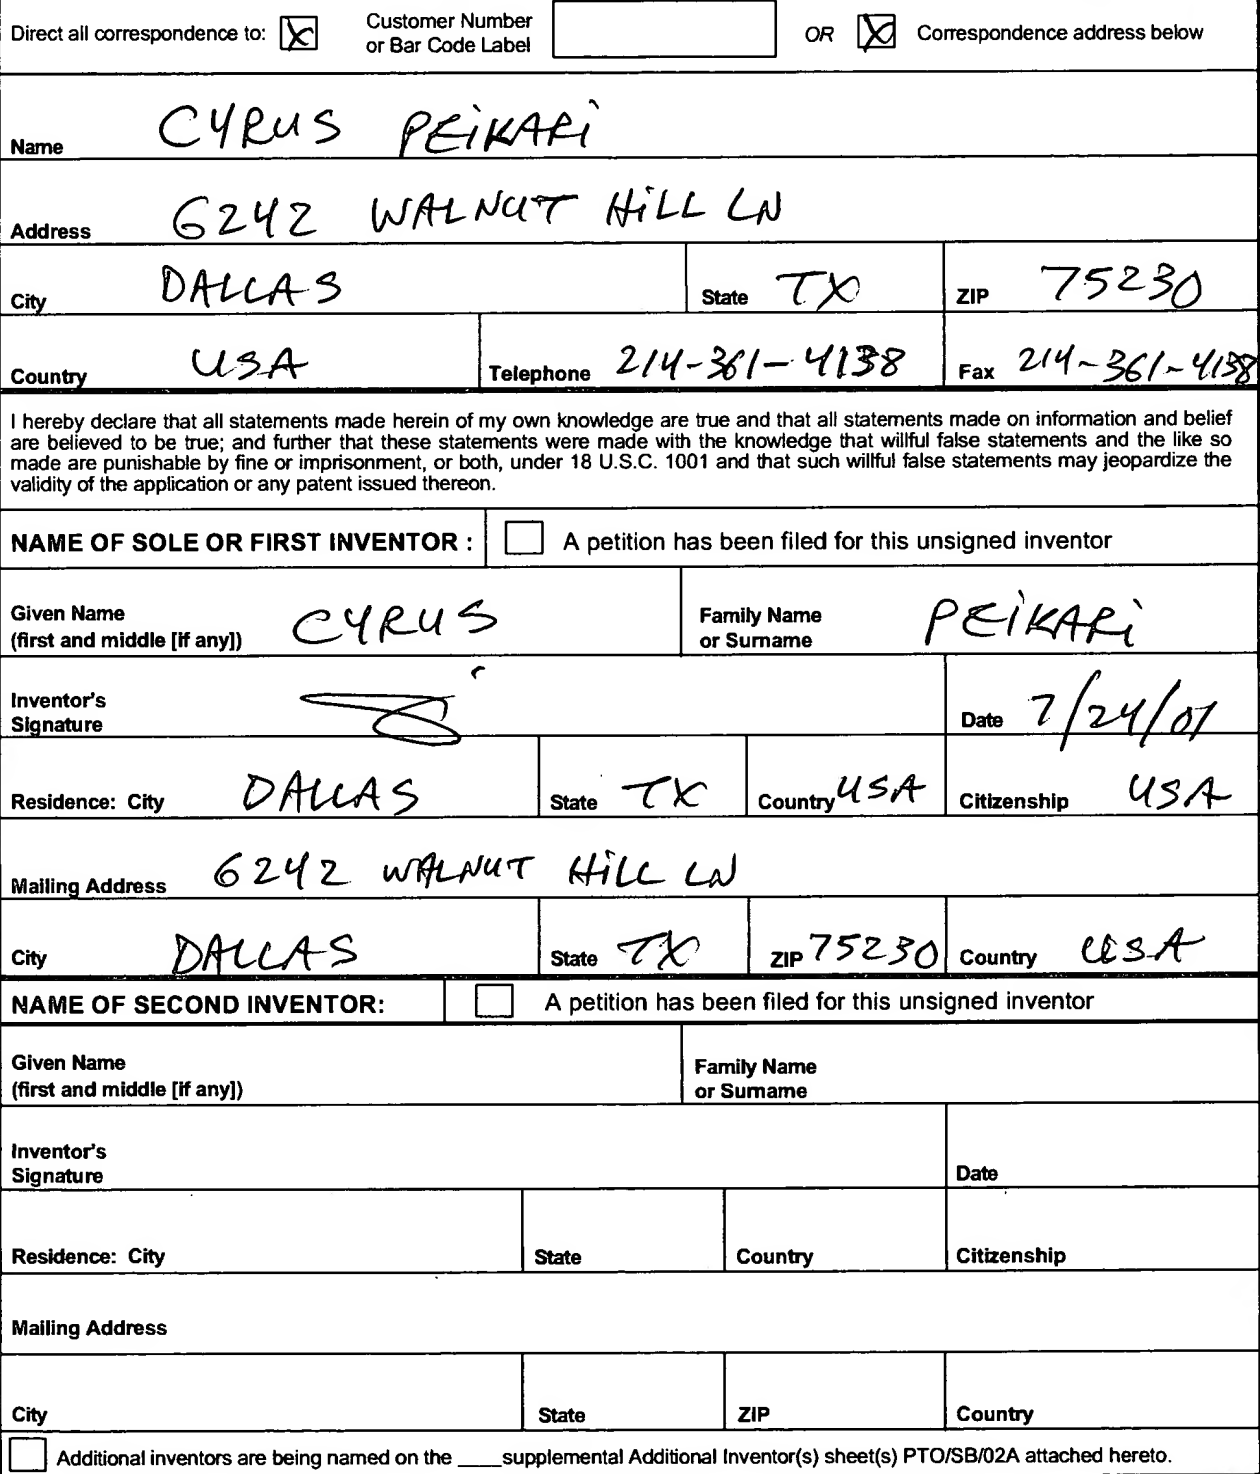 Direct all correspondence to: Customer Number or Bar Code Label OR Correspondence address below
Name CYRUS PEIKARI
Address 6242 WALNUT HILL LN
City DALLAS State TX ZIP 75230
Country USA Telephone 214-361-4138 Fax 214-361-4138
I hereby declare that all statements made herein of my own knowledge are true and that all statements made on information and belief
are believed to be true; and further that these statements were made with the knowledge that willful false statements and the like so
made are punishable by fine or imprisonment, or both, under 18 U.S.C. 1001 and that such willful false statements may jeopardize the
validity of the application or any patent issued thereon.
NAME OF SOLE OR FIRST INVENTOR : A petition has been filed for this unsigned inventor
Given Name (first and middle [if any]) CYRUS Family Name or Surname PEIKARI
Inventor's Signature Date 7/24/01
Residence: City DALLAS State TX Country USA Citizenship USA
Mailing Address 6242 WALNUT HILL LN
City DALLAS State TX ZIP 75230 Country USA
NAME OF SECOND INVENTOR: A petition has been filed for this unsigned inventor
Given Name (first and middle [if any]) Family Name or Surname
Inventor's Signature Date
Residence: City State Country Citizenship
Mailing Address
City State ZIP Country
Additional inventors are being named on the ____supplemental Additional Inventor(s) sheet(s) PTO/SB/02A attached hereto.